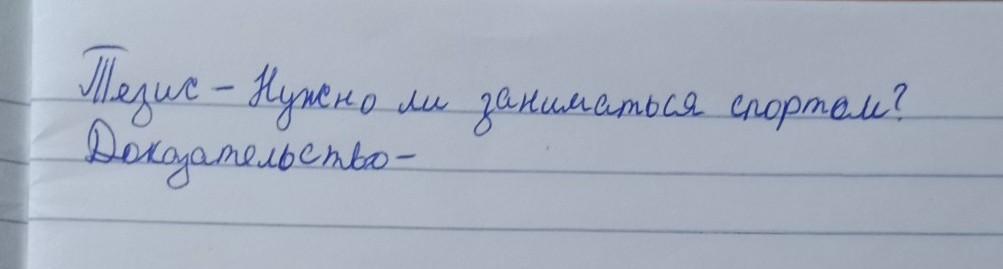 Тезис - Нужно ли заниматься спортом?
Доказательство-